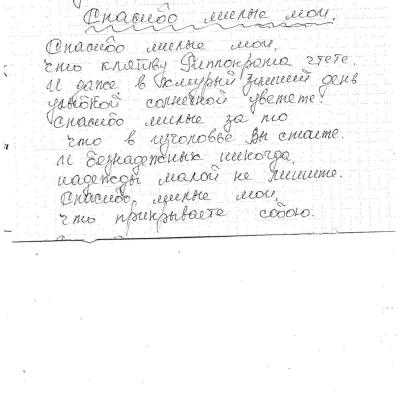 Спасибо милые мои.
Спасибо милые мои,
что клятву Гиппократа чтете.
И даже в хмурый зимний день
улыбкой солнечной цветете!
Спасибо милые за то
что в изголовье Вы стоите.
И безнадежных никогда,
надежды малой не лишите.
Спасибо, милые мои,
что прикрываете собою.